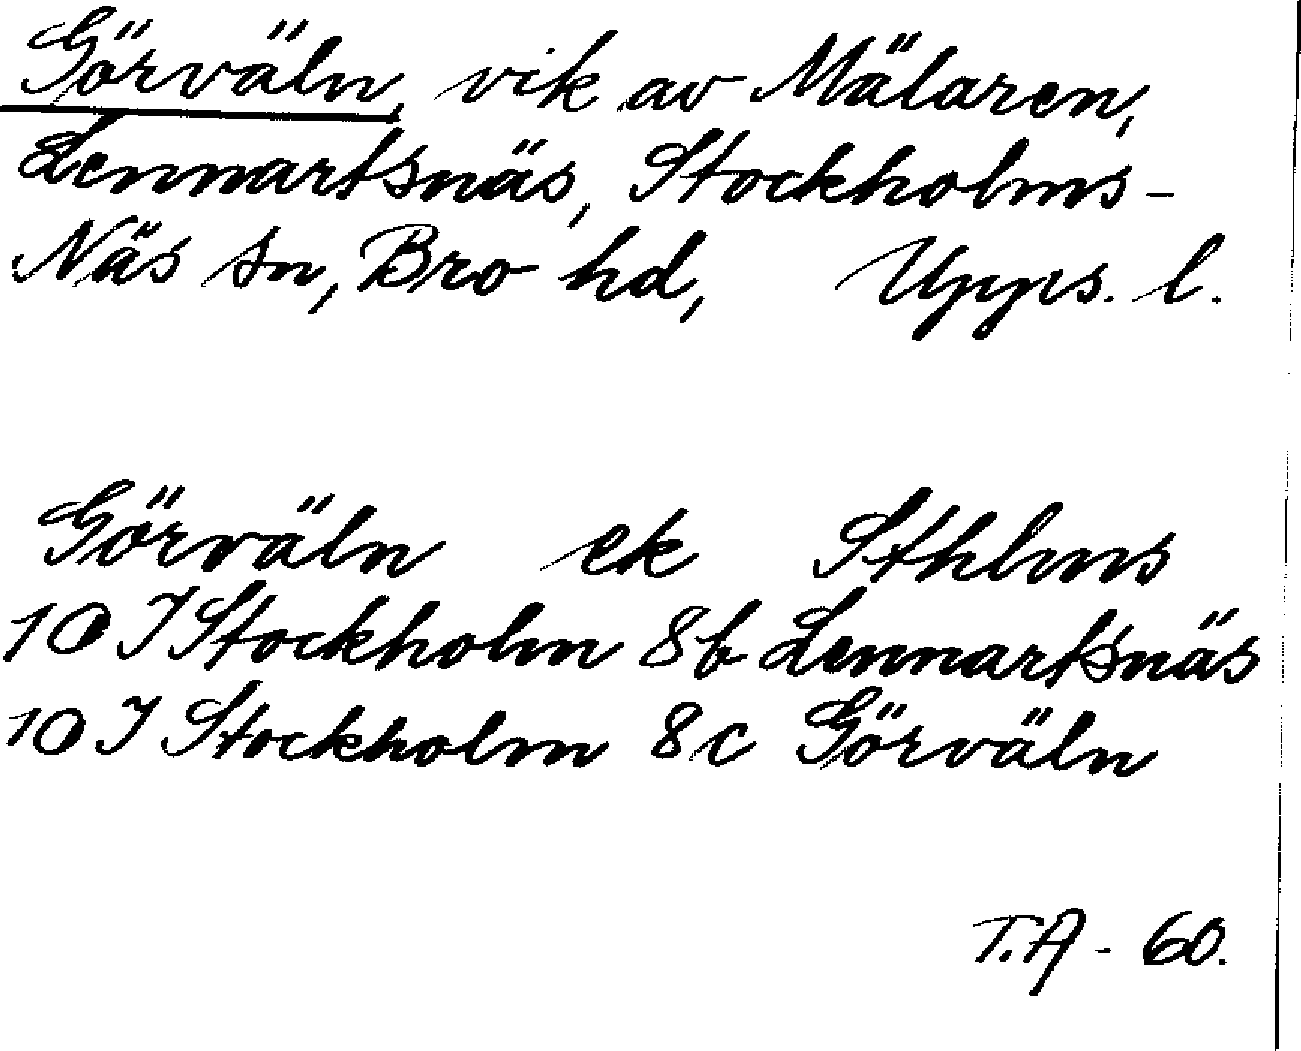 Görväln, vik av Mälaren,
Lennartsnäs, Stockholms-
Näs sn, Bro hd, Upps. l.
Görväln ek Sthlms
10 I Stockholm 8b Lennartsnäs
10 I Stockholm 8c Görväln
T.A - 60.